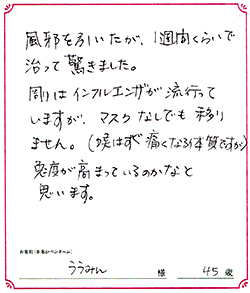 風邪を引いたが、1週間くらいで
治って驚きました。
周りはインフルエンザが流行って
いますが、マスクなしでも移り
ません。(喉はすぐ痛くなる体質ですが)
免疫が高まっているのかなと
思います。
お名前(本名かペンネーム)
ううみん 様 45 歳